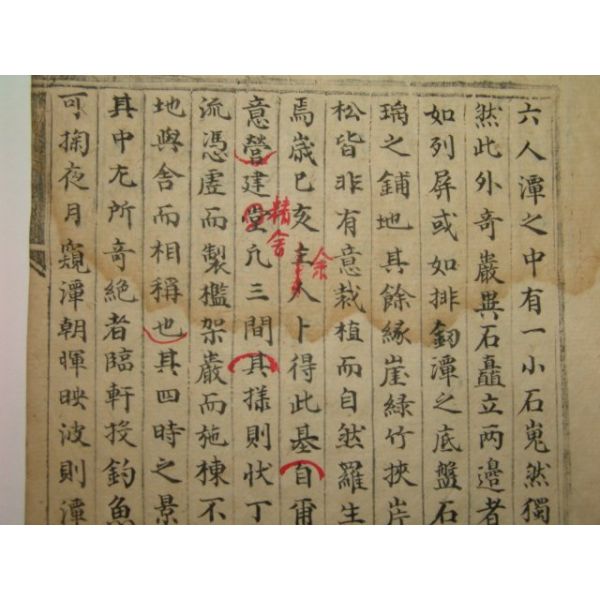 六人潭之中有一小石嵬然獨
然此外奇巖異石矗立两邊者
如列屏或如排釰潭之底盤石
瑀之鋪地其餘緣崖綠竹挾岸
松皆非有意裁植而自然羅生
焉歲巳亥主人卜得此基自甫
余
意營建堂凢三間其樣則状丁
精舍
流憑虛而製檻架巖而施棟不
地與舍而相稱也其四時之景
其中尤所奇絕者臨軒投釣魚
可掬夜月窺潭朝暉映波則潭